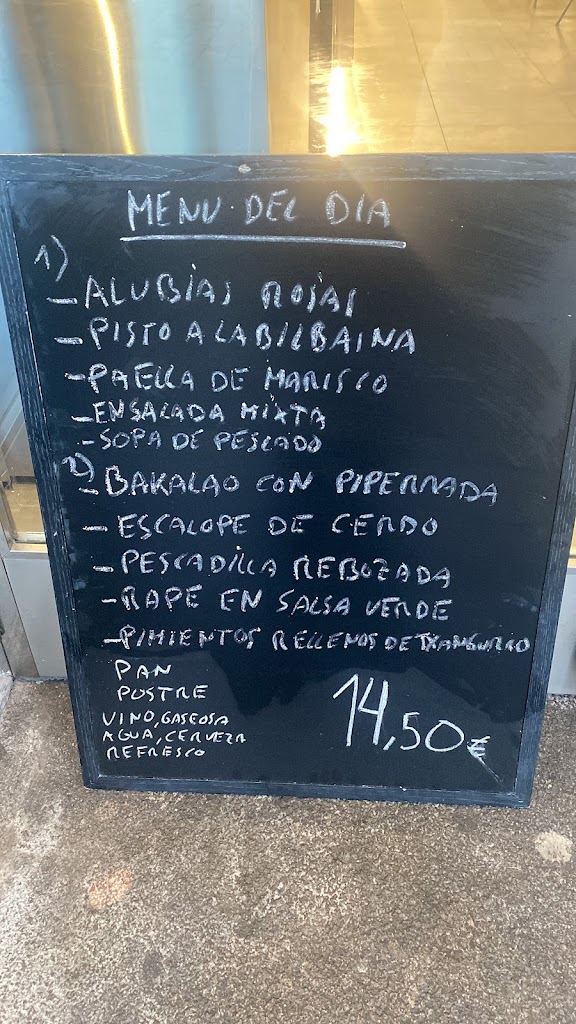 MENU DEL DIA
1)
- ALUBIAS ROJAS
- PISTO A LA BILBAINA
- PAELLA DE MARISCO
- ENSALADA MIXTA
- SOPA DE PESCADO
2)
- BAKALAO CON PIPERRADA
- ESCALOPE DE CERDO
- PESCADILLA REBOZADA
- RAPE EN SALSA VERDE
- PIMIENTOS RELLENOS DE TXANGURRO
PAN
POSTRE
VINO, GASEOSA
AGUA, CERVEZA
REFRESCO
14,50€